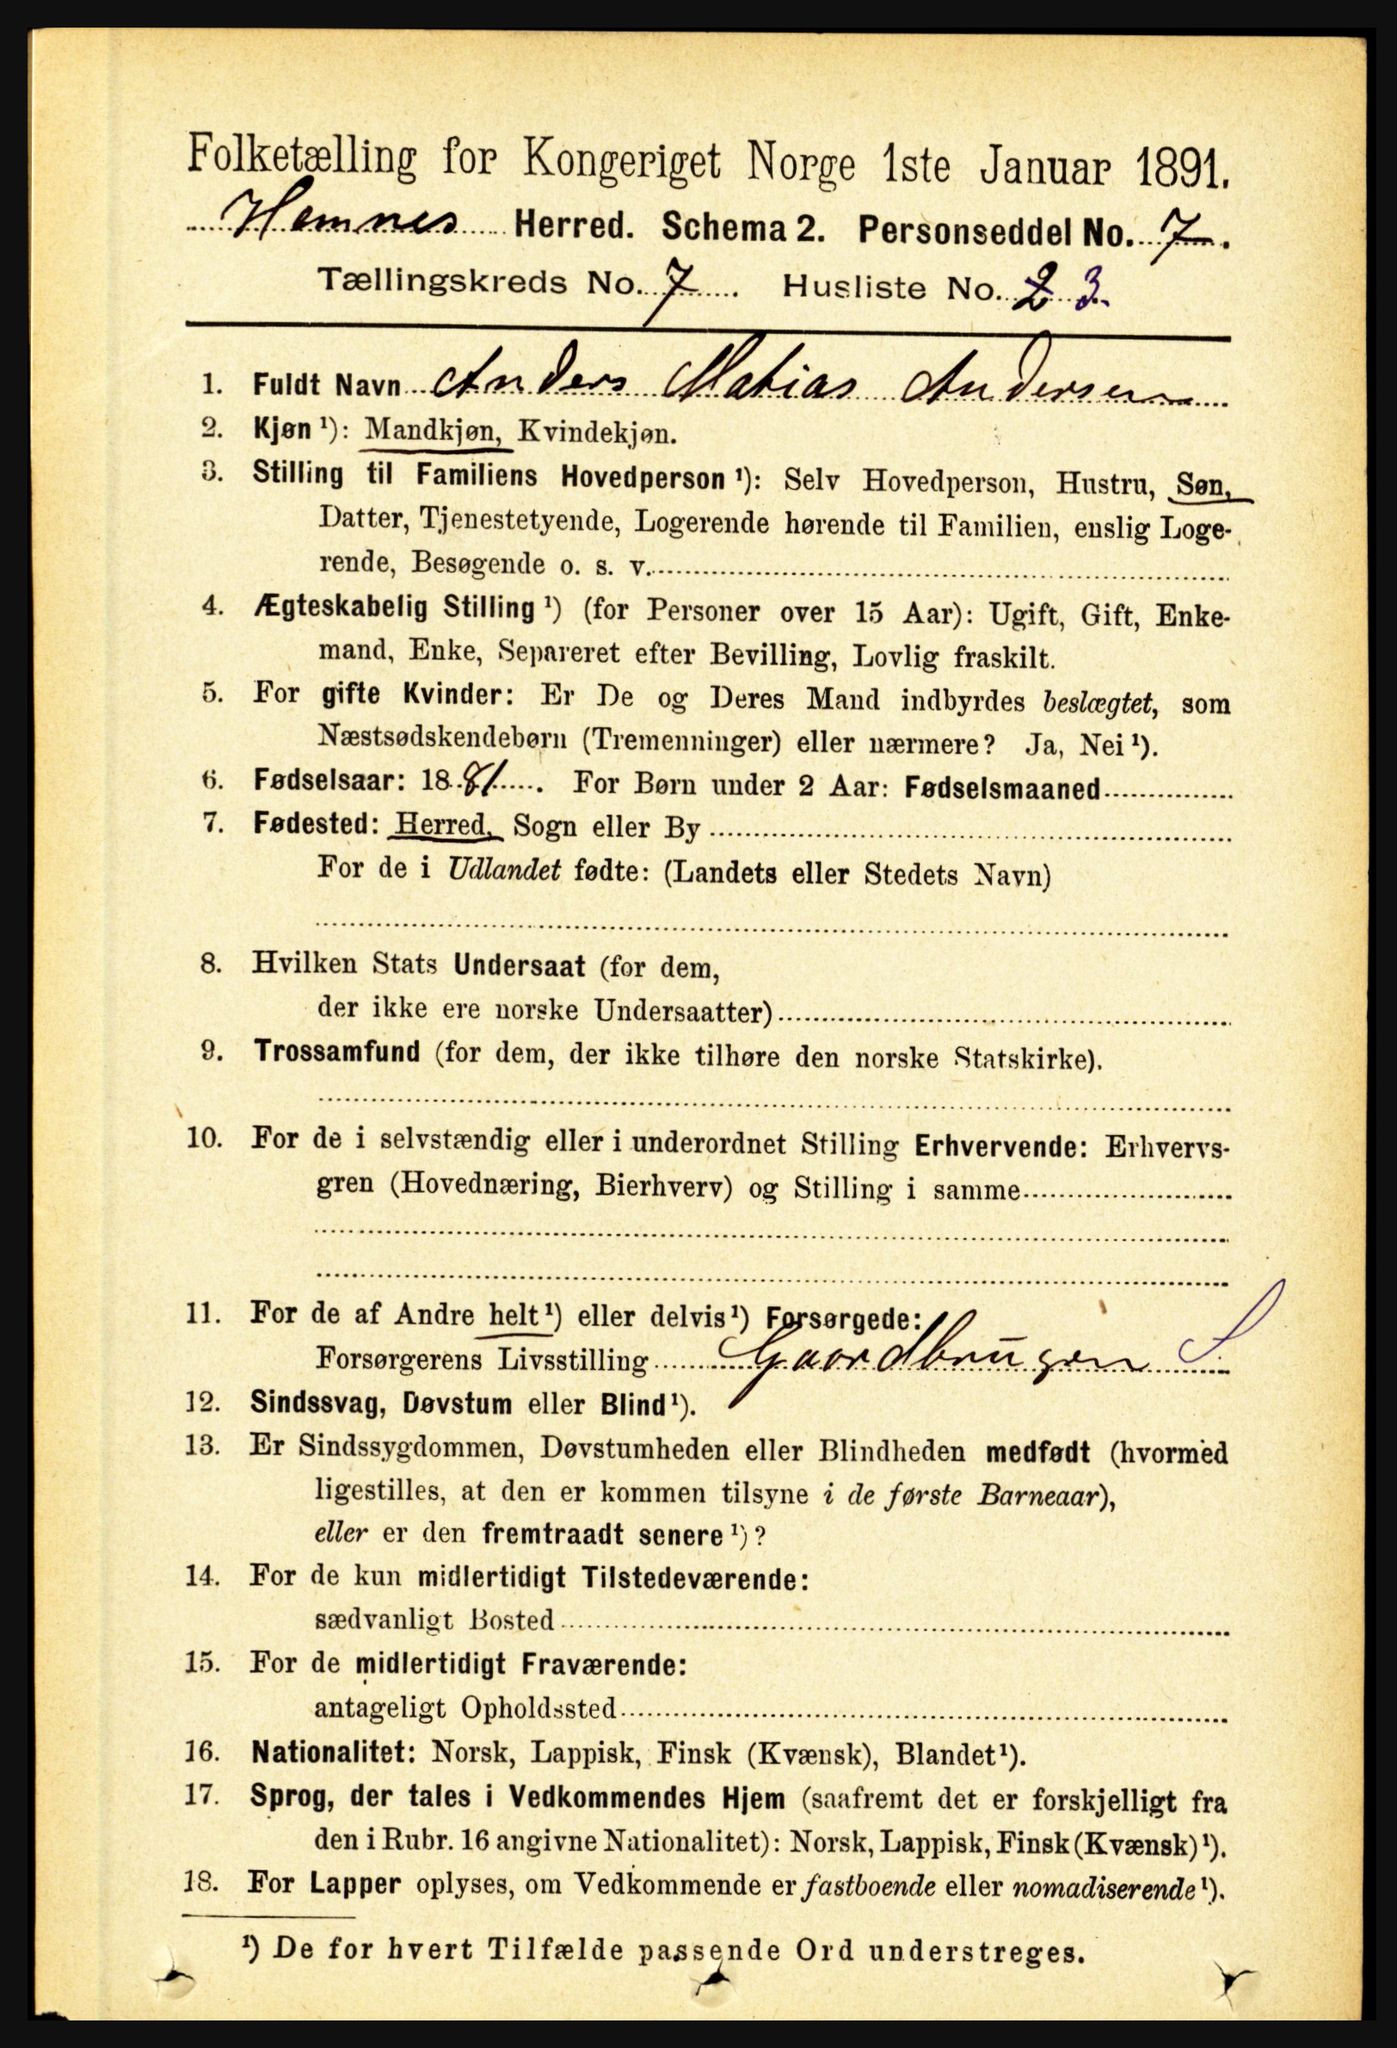 Folketælling for Kongeriget Norge 1ste Januar 1891.
Hemnes Herred. Schema 2. Personseddel No. 7.
Tællingskreds No. 7. Husliste No. 2 3.
1. Fuldt Navn Anders Matias Andersen
2. Kjøn ¹): Mandkjøn, Kvindekjøn.
3. Stilling til Familiens Hovedperson ¹): Selv Hovedperson, Hustru, Søn,
Datter, Tjenestetyende, Logerende hørende til Familien, enslig Loge-
rende, Besøgende o. s. v.
4. Ægteskabelig Stilling ¹) (for Personer over 15 Aar): Ugift, Gift, Enke-
mand, Enke, Separeret efter Bevilling, Lovlig fraskilt.
5. For gifte Kvinder: Er De og Deres Mand indbyrdes beslægtet, som
Næstsødskendebørn (Tremenninger) eller nærmere? Ja, Nei ¹).
6. Fødselsaar: 1881. For Børn under 2 Aar: Fødselsmaaned
7. Fødested: Herred, Sogn eller By
For de i Udlandet fødte: (Landets eller Stedets Navn)
8. Hvilken Stats Undersaat (for dem,
der ikke ere norske Undersaatter)
9. Trossamfund (for dem, der ikke tilhøre den norske Statskirke).
10. For de i selvstændig eller i underordnet Stilling Erhvervende: Erhvervs-
gren (Hovednæring, Bierhverv) og Stilling i samme
11. For de af Andre helt ¹) eller delvis ¹) Forsørgede:
Forsørgerens Livsstilling Gaardbrugen S
12. Sindssvag, Døvstum eller Blind ¹).
13. Er Sindssygdommen, Døvstumheden eller Blindheden medfødt (hvormed
ligestilles, at den er kommen tilsyne i de første Barneaar),
eller er den fremtraadt senere ¹)?
14. For de kun midlertidigt Tilstedeværende:
sædvanligt Bosted
15. For de midlertidigt Fraværende:
antageligt Opholdssted
16. Nationalitet: Norsk, Lappisk, Finsk (Kvænsk), Blandet ¹).
17. Sprog, der tales i Vedkommendes Hjem (saafremt det er forskjelligt fra
den i Rubr. 16 angivne Nationalitet): Norsk, Lappisk, Finsk (Kvænsk) ¹).
18. For Lapper oplyses, om Vedkommende er fastboende eller nomadiserende ¹).
¹) De for hvert Tilfælde passende Ord understreges.